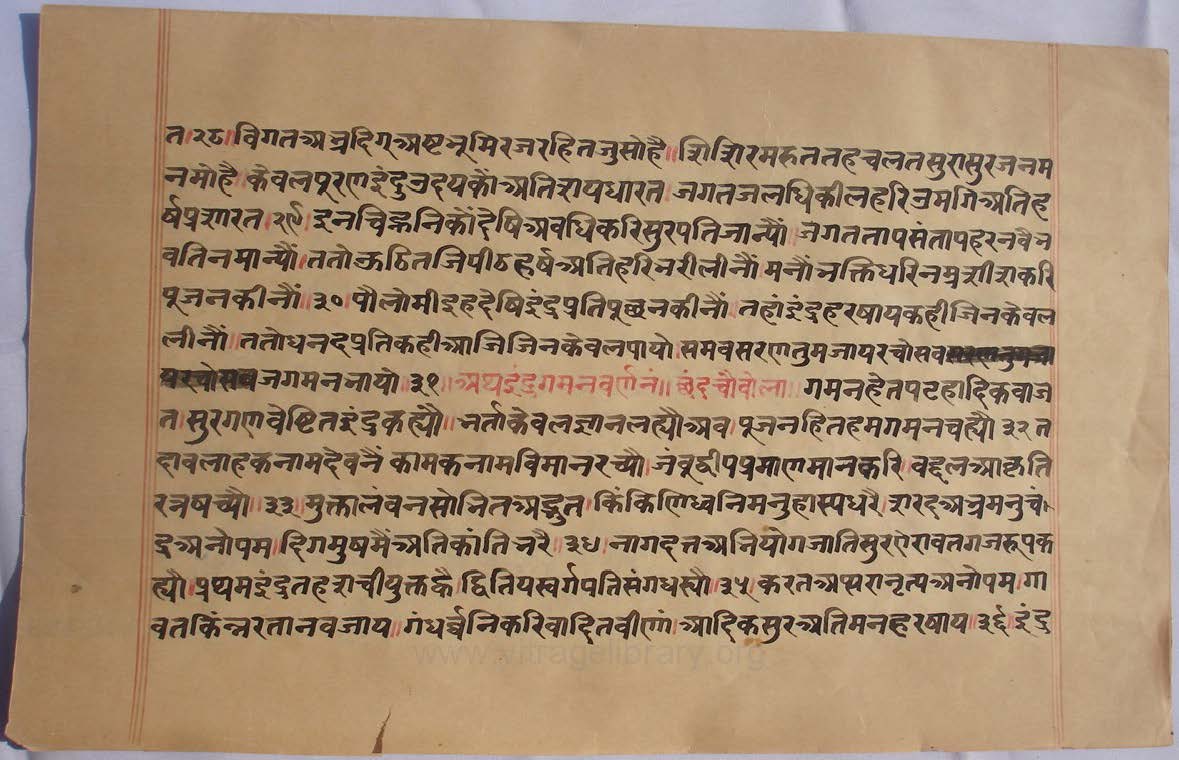 त।२८। विगतअभ्रदिग्अष्टभूमिरजरहितजुसोहै॥ शिशिरमरुततहचलतसुरासुरजनम
नमोहै॥ केवलपूरणइंदुउदयकौंअतिशयधारत। जगतजलधिकीलहरिभ्रमगिअतिह
र्षप्रशारत।२९। इनचिह्ननिकौंदेषिअवधिकरिसुरपतिजान्यौं। जगततापसंतापहरनवैभ
वतिनमान्यौं। ततोऊठितजिपीठहर्षअतिहरिभरीलीनौं। मनौंभक्तिधरिनम्रशीशकरि
पूजनकीनौं।३०। पौलोमीइहदेषिइंद्रप्रतिपूछनकीनौं। तहांइंद्रहरषायकहीजिनकेवल
लीनौं। ततोधनदप्रतिकहीआजिजिनकेवलपायो। समवसरणतुमजायरचोसव
जगमनभायो।३१॥ अथइंद्रगमनवर्णनं॥ छंदचौवोला॥ गमनहेतपटहादिकवाजे
त। सुरगणवेष्टितइंद्रकह्यौ॥ भर्ताकेवलज्ञानलह्यौअव। पूजनहितहमगमनचह्यौ।३२।त
दावलाहकनामदेवनैं। कामकनामविमानरच्यौ। जंवूद्वीपप्रमाणमानकरि। वद्दलआकृति
रत्नषच्यौ।३३। मुक्तालंवनसोभितअद्भुत। किंकिणिध्वनिमनुहास्यधरै। शारदअभ्रमनुचं
द्रअनोपम। दिगमुषमैंअतिकांतिभरै।३४। नागदत्तअभियोगजातिसुरऐरावतगजरूपक
ह्यौ। प्रथमइंद्रतहशचीयुक्तह्वै। द्वितियस्वर्गपतिसंगधस्यौ।३५। करतअप्सरानृत्यअनोपम। गा
वतकिंन्नरतानवजाय॥ गंधर्व्वनिकरिवादितवीणां। आदिकसुरअतिमनहरषाय।३६। इंद्र
www.vitragelibrary.org